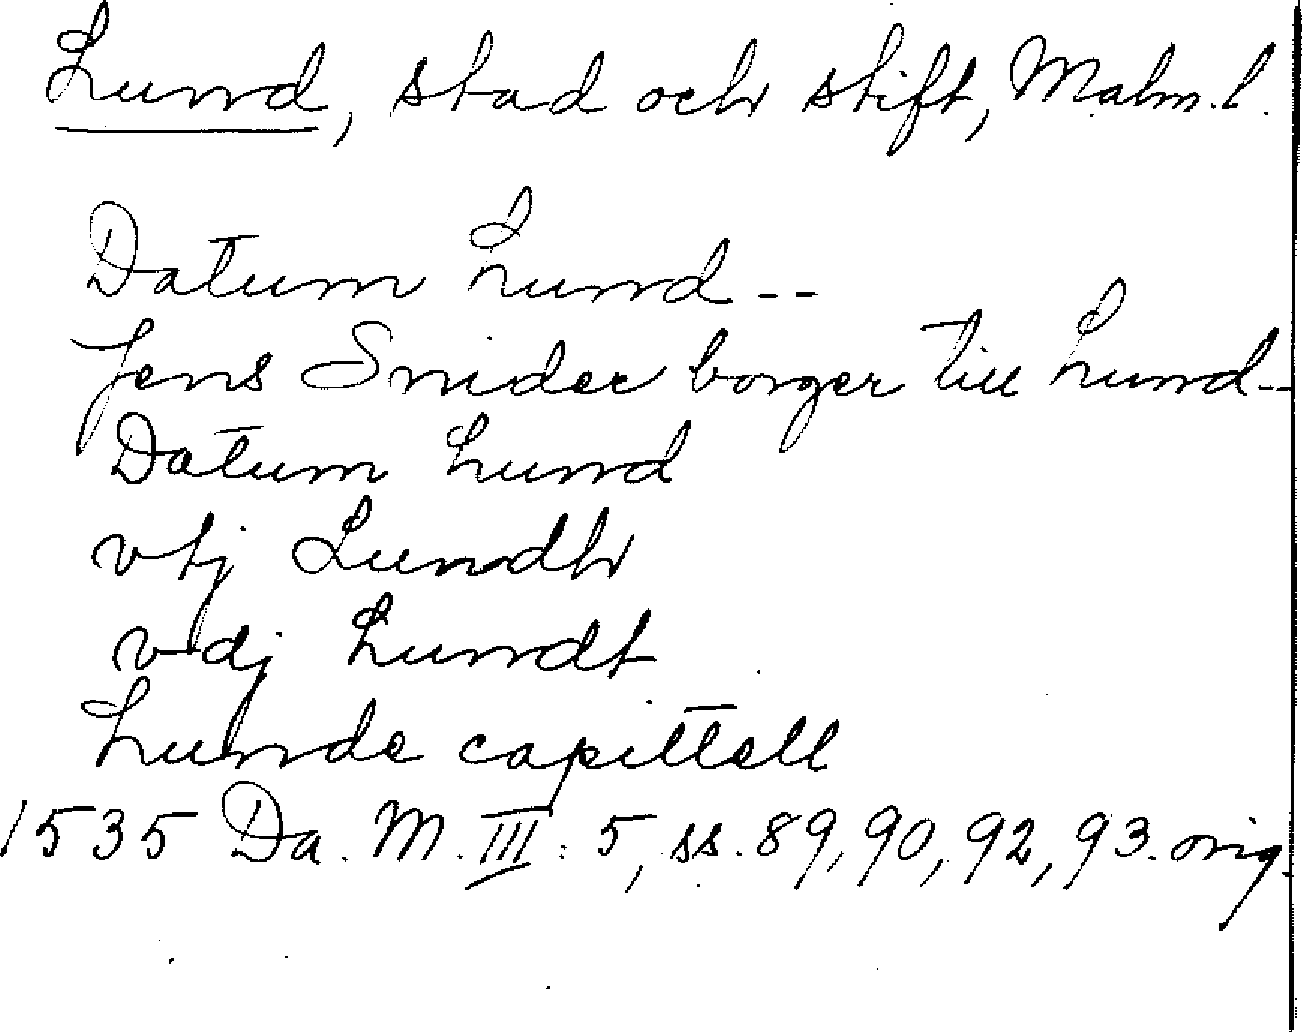 Lund, stad och stift, Malm.l.
Datum Lund --
Jens Snider borger till Lund-
Datum Lund
vtj Lundh
vdj Lundt
Lunde capittell
1535 Da. M. III: 5, ss. 89, 90, 92, 93. orig.